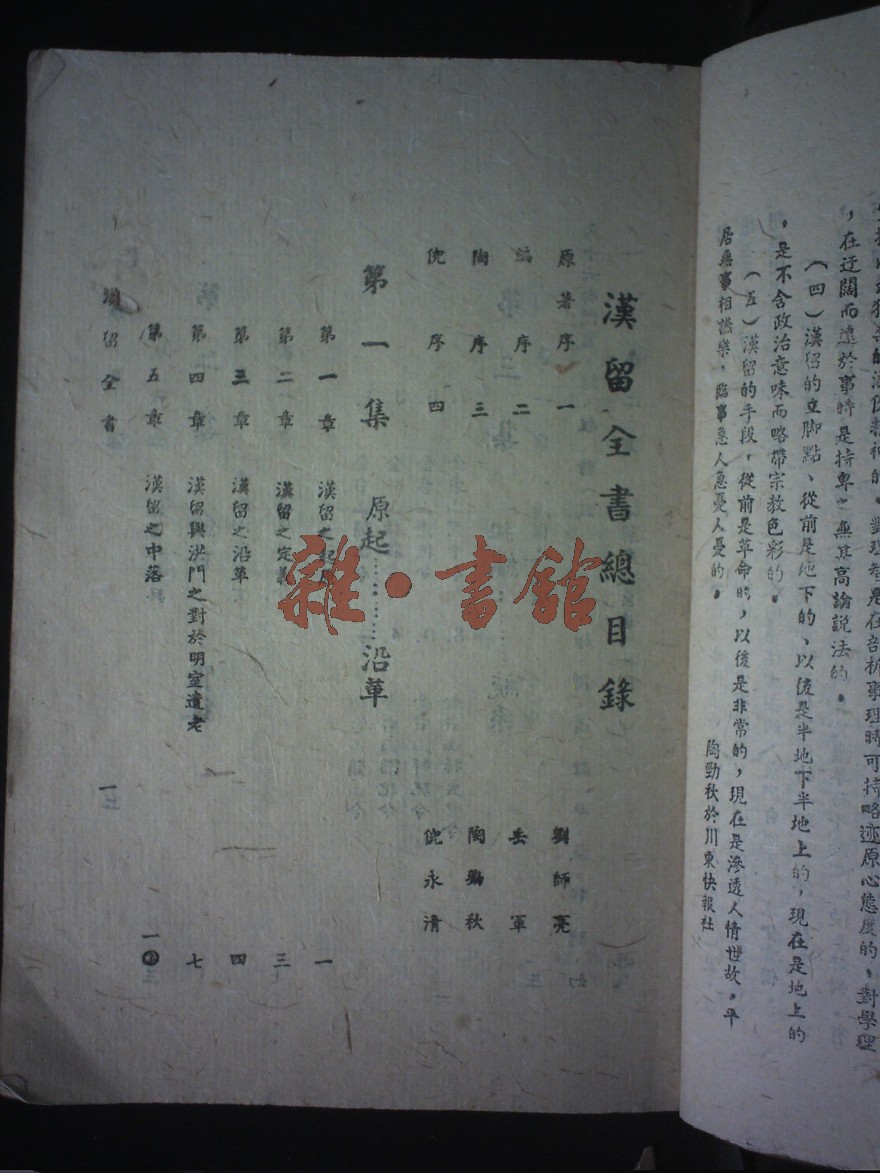 ，在迂闊而遠於事時是持卑之無甚高論說法的。
（四）漢留的立脚點、從前是地下的、以後是半地下半地上的，現在是地上的
，是不含政治意味而略帶宗教色彩的。
（五）漢留的手段，從前是革命的，以後是非常的，現在是滲透人情世故，平
居無事相讌樂，臨事急人急憂人憂的。
陶勁秋於川東快報社
漢留全書總目錄
原著序一 劉師亮
編序二 岳軍
陶序三 陶勁秋
倪序四 倪永清
第一集 原起……沿革
第一章 漢留之起 一
第二章 漢留之定義 三
第三章 漢留之沿革 四
第四章 漢留與洪門之對於明室遺老 七
第五章 漢留之中落
留全書
雜·書館